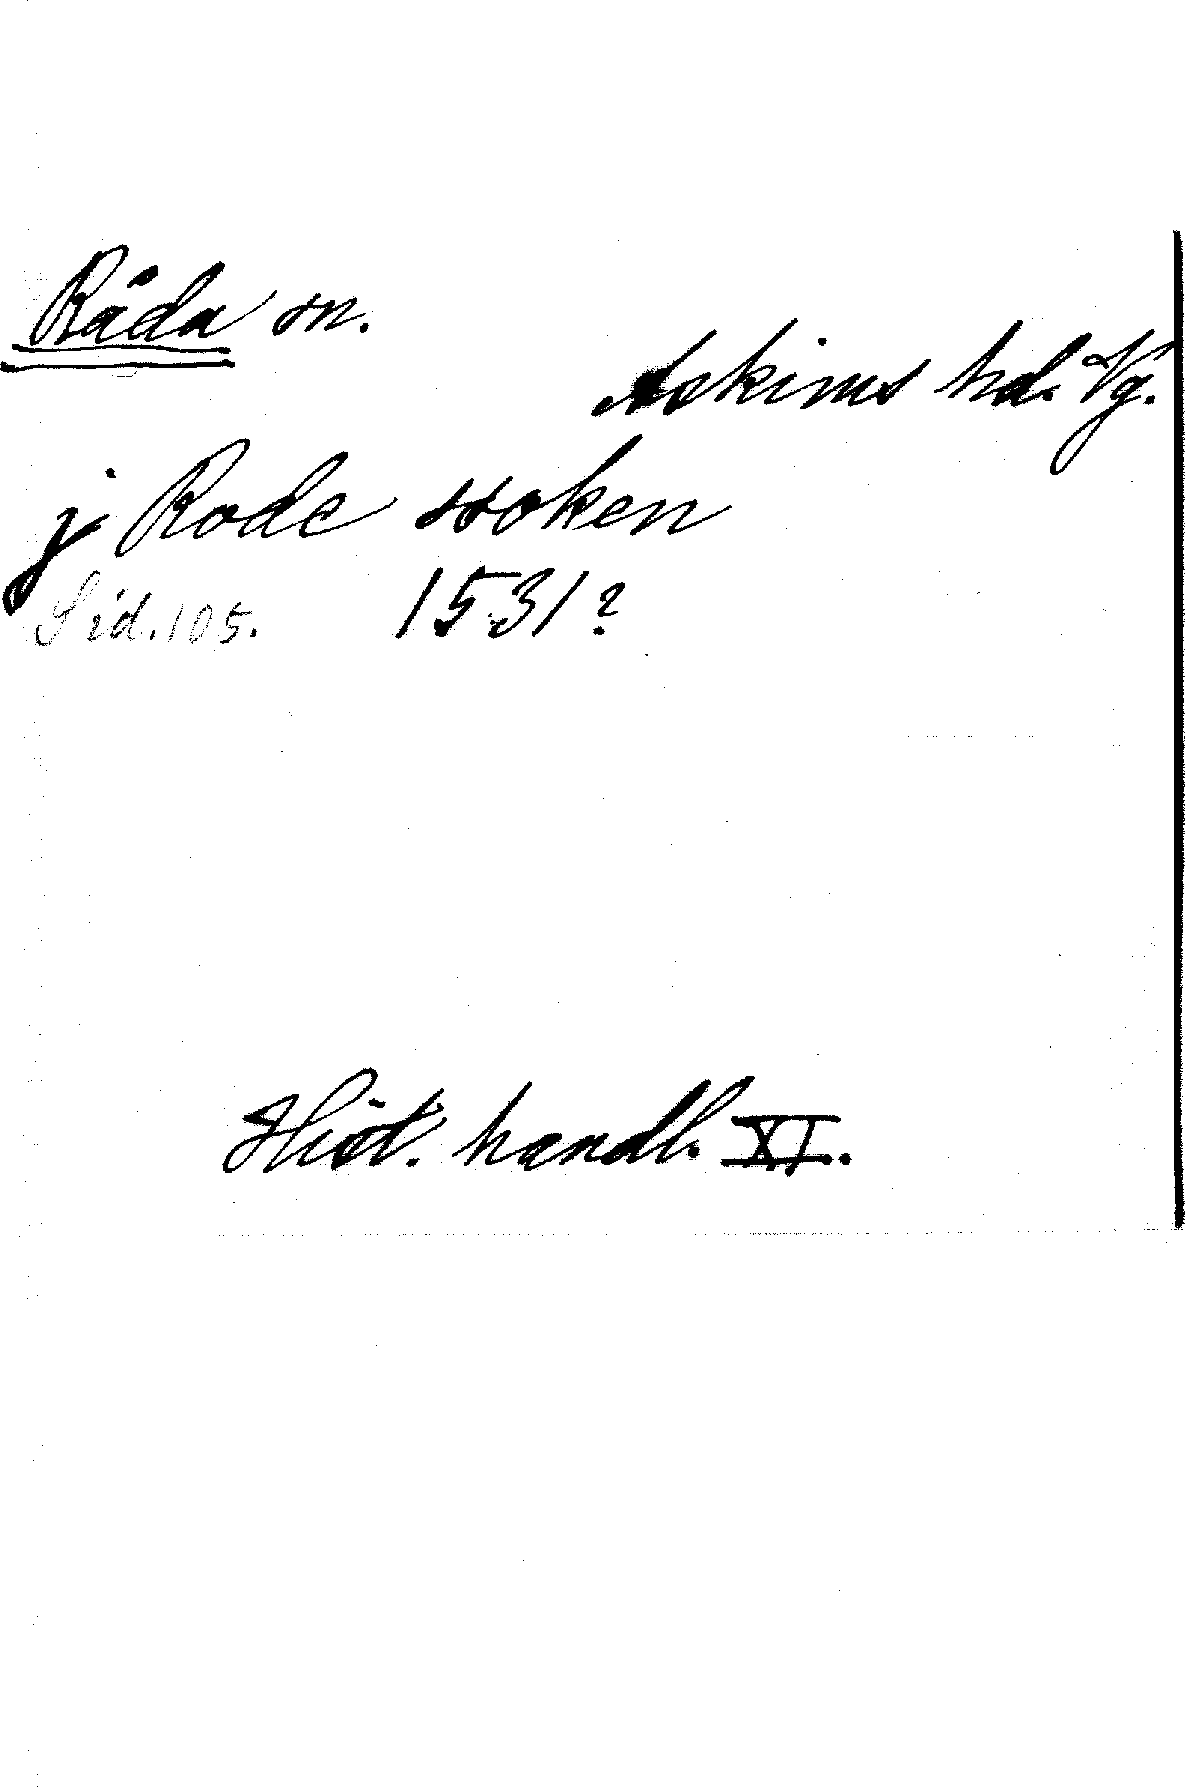 Råda sn.
Askims hd. Vg.
j Rode ssoken
Sid. 105. 1531?
Hist. handl. XI.